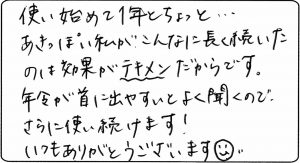 使い始めて1年とちょっと…
あきっぽい私がこんなに長く続いた
のは効果がテキメンだからです。
年令が首に出やすいとよく聞くので、
さらに使い続けます!
いつもありがとうございます